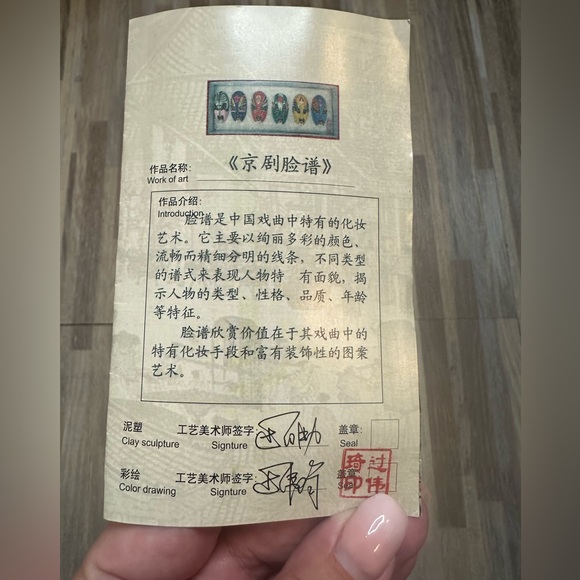 作品名称:
Work of art
《京剧脸谱》
作品介绍:
Introduction
脸谱是中国戏曲中特有的化妆
艺术。它主要以绚丽多彩的颜色、
流畅而精细分明的线条，不同类型
的谱式来表现人物特 有面貌，揭
示人物的类型、性格、品质、年龄
等特征。
脸谱欣赏价值在于其戏曲中的
特有化妆手段和富有装饰性的图案
艺术。
泥塑 工艺美术师签字: 盖章:
Clay sculpture Signture Seal
彩绘 工艺美术师签字: 盖章:
Color drawing Signture
琦过
印伟